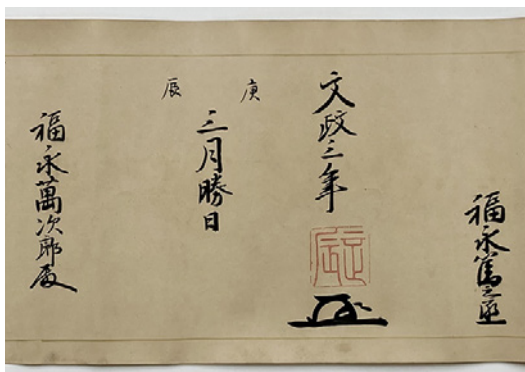 福永篤之丞
文政三年
正辰
庚
辰
三月勝日
福永萬次郎殿